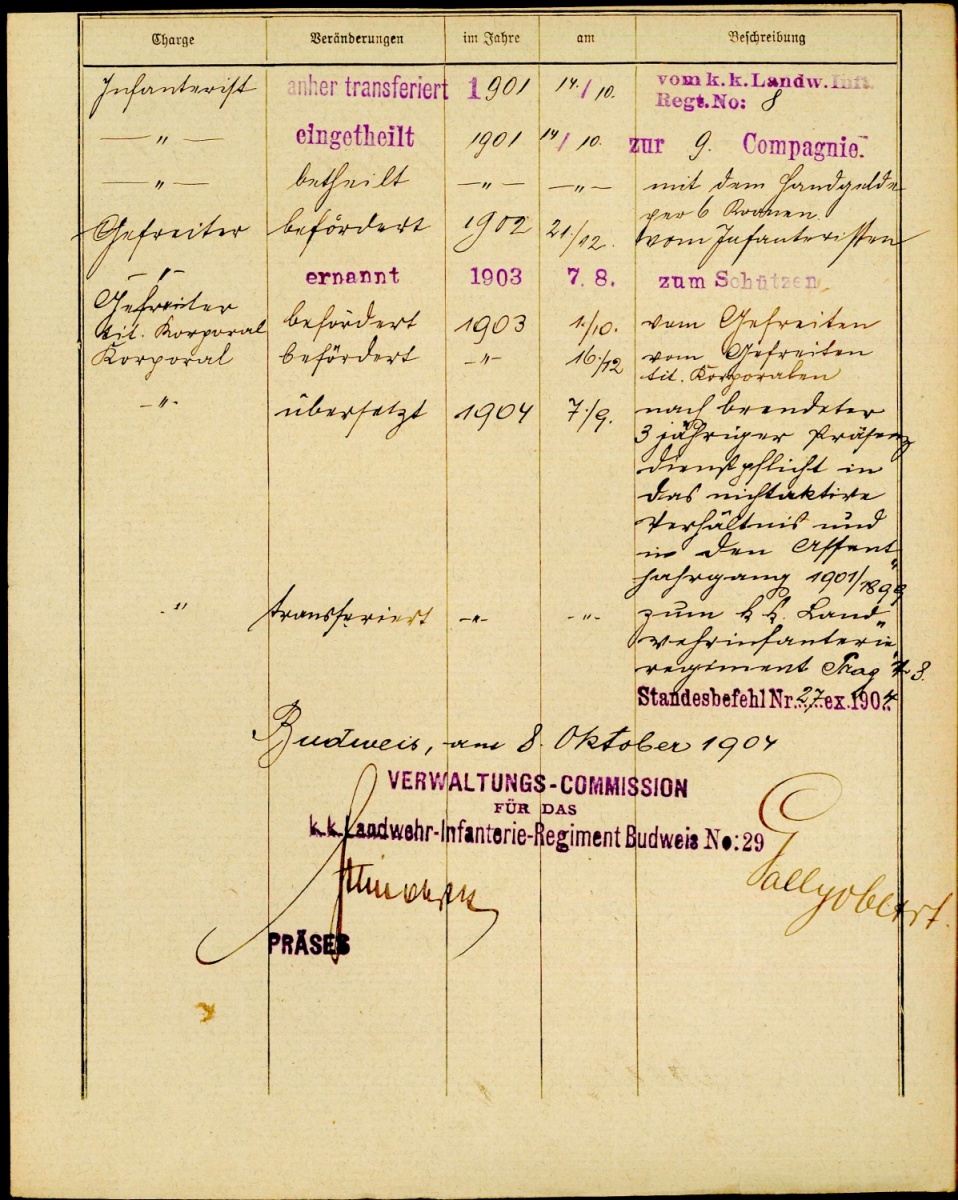 Charge Veränderungen im Jahre am Beschreibung
Infanterist anher transferiert 1901 14./10. vom k.k. Landw. Inft.
Regt. No: 8
— " — eingetheilt 1901 14/10. zur 9. Compagnie.
— " — betheilt — " — — " — mit dem Handgelde
per 6 Kronen.
Gefreiter befördert 1902 21./12. vom Infanteristen
— " — ernannt 1903 7. 8. zum Schützen
Gefreiter
tit. Korporal befördert 1903 1./10. vom Gefreiten
Korporal befördert — " — 16./12 vom Gefreiten
tit. Korporalen
— " — übersetzt 1904 7./9. nach beendeter
3 jähriger Präsenz
dienstpflicht in
das nichtaktive
Verhältnis und
in den Assent"
jahrgang 1901/1899
" transferiert — " — — " — zum k.k. Land"
wehrinfanterie"
regiment Prag No 8.
Standesbefehl Nr. 27 ex. 1904
Budweis, am 8. Oktober 1904
VERWALTUNGS-COMMISSION
FÜR DAS
k.k. Landwehr-Infanterie-Regiment Budweis No: 29
PRÄSES